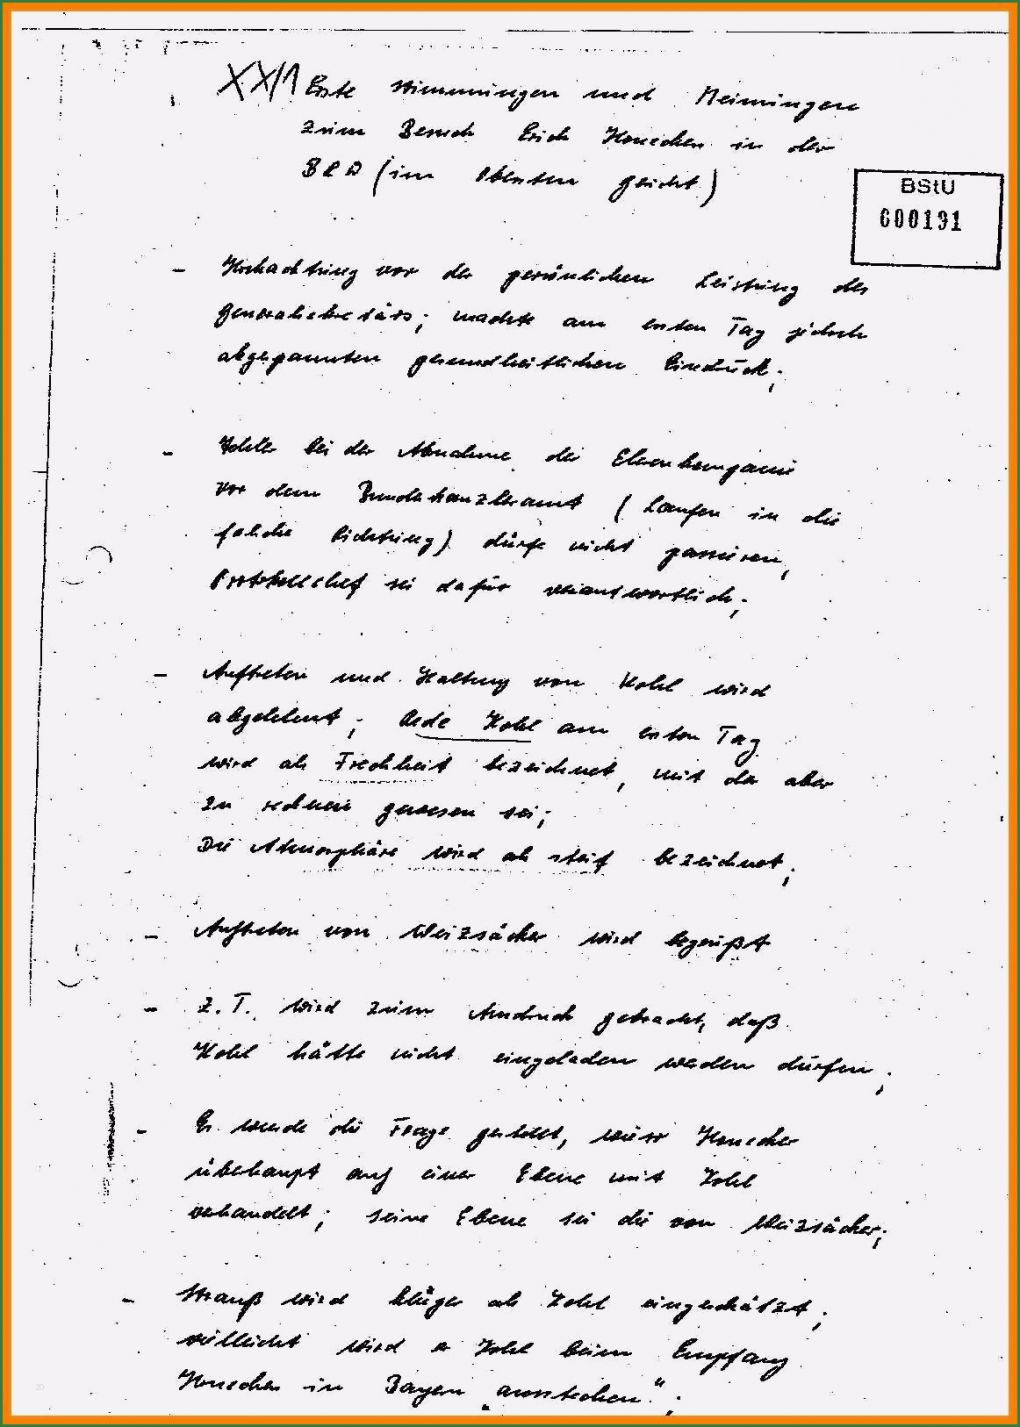 XX/1 Erste Stimmungen und Meinungen
zum Besuch Erich Honeckers in der
BRD (im Obersten Gericht)
BStU
000191
- Hochachtung vor der persönlichen Leistung des
Generalsekretärs; machte am ersten Tag jedoch
abgespannten gesundheitlichen Eindruck;
- Fehler bei der Abnahme der Ehrenkompanie
vor dem Bundeskanzleramt (Laufen in die
falsche Richtung) dürfe nicht passieren,
Protokollchef sei dafür verantwortlich;
- Auftreten und Haltung von Kohl wird
abgelehnt; Rede Kohl am ersten Tag
wird als Frechheit bezeichnet, mit der aber
zu rechnen gewesen sei;
Die Atmosphäre wird als steif bezeichnet;
- Auftreten von Weizsäcker wird begrüßt
- Z.T. wird zum Ausdruck gebracht, daß
Kohl hätte nicht eingeladen werden dürfen;
- Es wurde die Frage gestellt, wieso Honecker
überhaupt auf einer Ebene mit Kohl
verhandelt; seine Ebene sei die von Weizsäcker;
- Strauß wird klüger als Kohl eingeschätzt;
vielleicht wird er Kohl beim Empfang
Honeckers in Bayern „ausstechen";